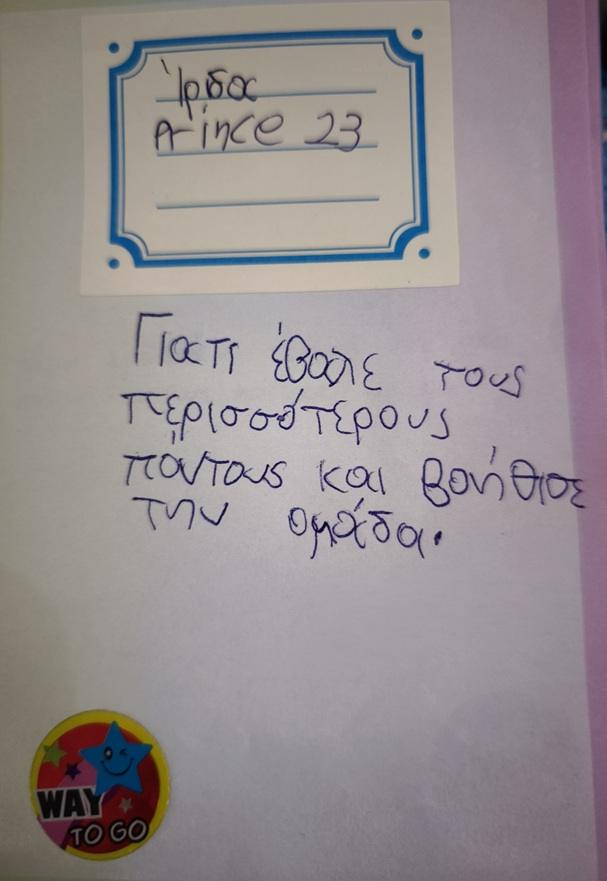 Ίρδα
A-ince 23
Γιατι έβαλε τους
περισσότερους
πόντους και βοήθισε
την ομάδα.
WAY
TO GO